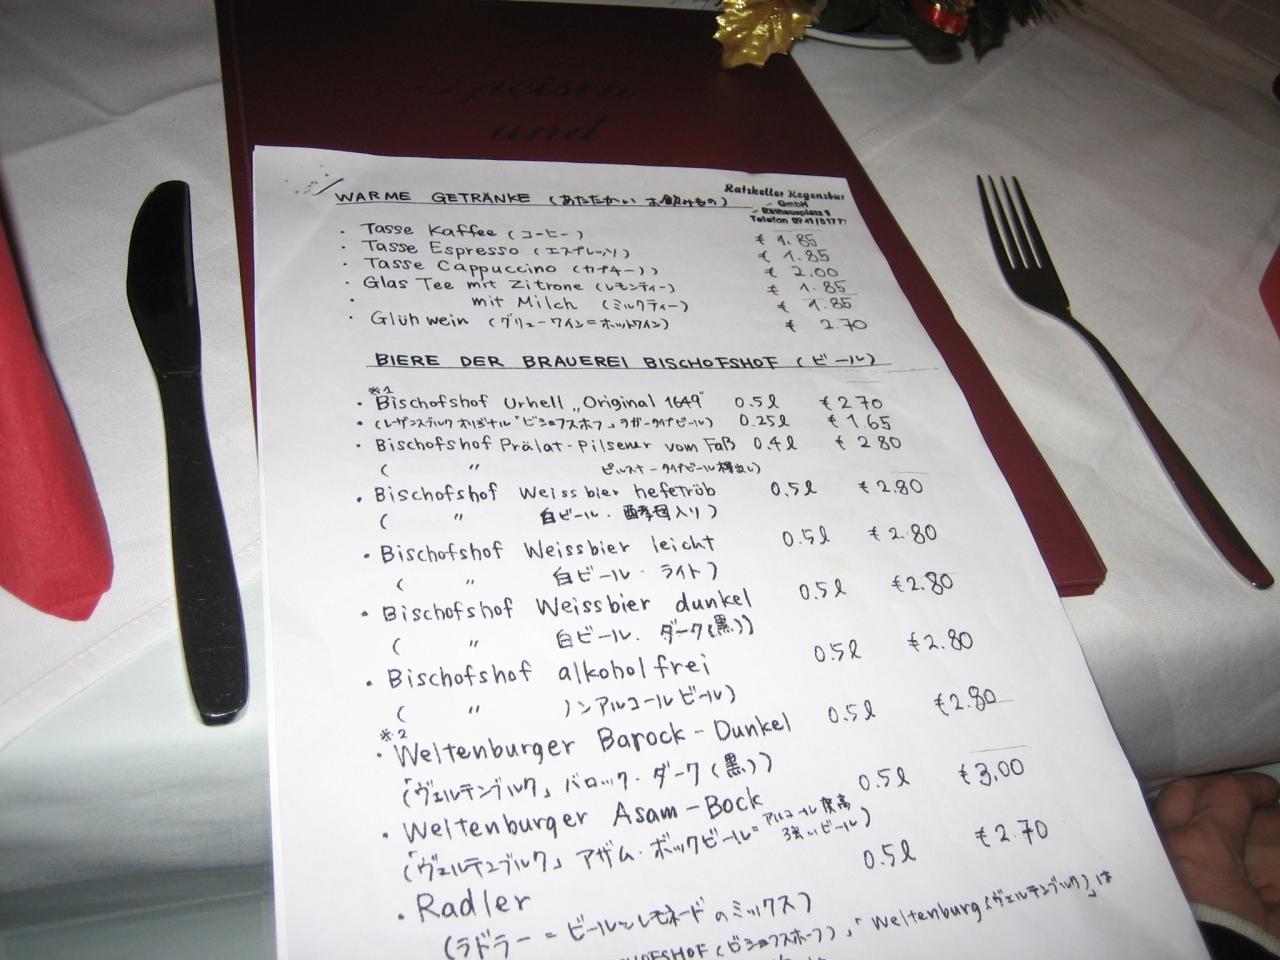 Speisen
und
Ratskeller Regensbur
GmbH
Rathausplatz 1
Telefon 0941/5177
WARME GETRÄNKE (あたたかい お飲みもの)
・ Tasse Kaffee (コーヒー) € 1.85
・ Tasse Espresso (エスプレッソ) € 1.85
・ Tasse Cappuccino (カプチーノ) € 2.00
・ Glas Tee mit Zitrone (レモンティー) € 1.85
・ mit Milch (ミルクティー) € 1.85
・ Glühwein (グリューワイン=ホットワイン) € 2.70
BIERE DER BRAUEREI BISCHOFSHOF (ビール)
※1
・ Bischofshof Urhell „Original 1649" 0.5l € 2.70
・ (レーゲンスブルク オリジナル「ビショフスホフ」ラガータイプビール) 0.25l € 1.65
・ Bischofshof Prälat-Pilsener vom Faß 0.4l € 2.80
( 〃 ピルスナータイプビール樽出し)
・ Bischofshof Weissbier hefetrüb 0.5l € 2.80
( 〃 白ビール・酵母入り)
・ Bischofshof Weissbier leicht 0.5l € 2.80
( 〃 白ビール・ライト)
・ Bischofshof Weissbier dunkel 0.5l € 2.80
( 〃 白ビール・ダーク(黒))
・ Bischofshof alkoholfrei 0.5l € 2.80
( 〃 ノンアルコールビール)
※2
・ Weltenburger Barock-Dunkel 0.5l € 2.80
(「ヴェルテンブルク」バロック・ダーク(黒))
・ Weltenburger Asam-Bock 0.5l € 3.00
(「ヴェルテンブルク」アザム・ボックビール=アルコール度高 強いビール)
・ Radler 0.5l € 2.70
(ラドラー = ビールとレモネードのミックス)
CHOFSHOF (ビショフスホーフ)」「Weltenburg (ヴェルテンブルク)」は